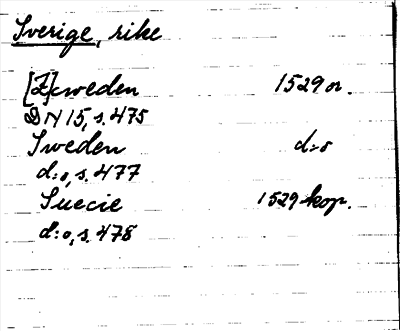 Sverige, rike
[Z]weden 1529 or.
DN 15, s. 475
Sweden d:o
d:o, s. 477
Suecie 1529 kop.
d:o, s. 478